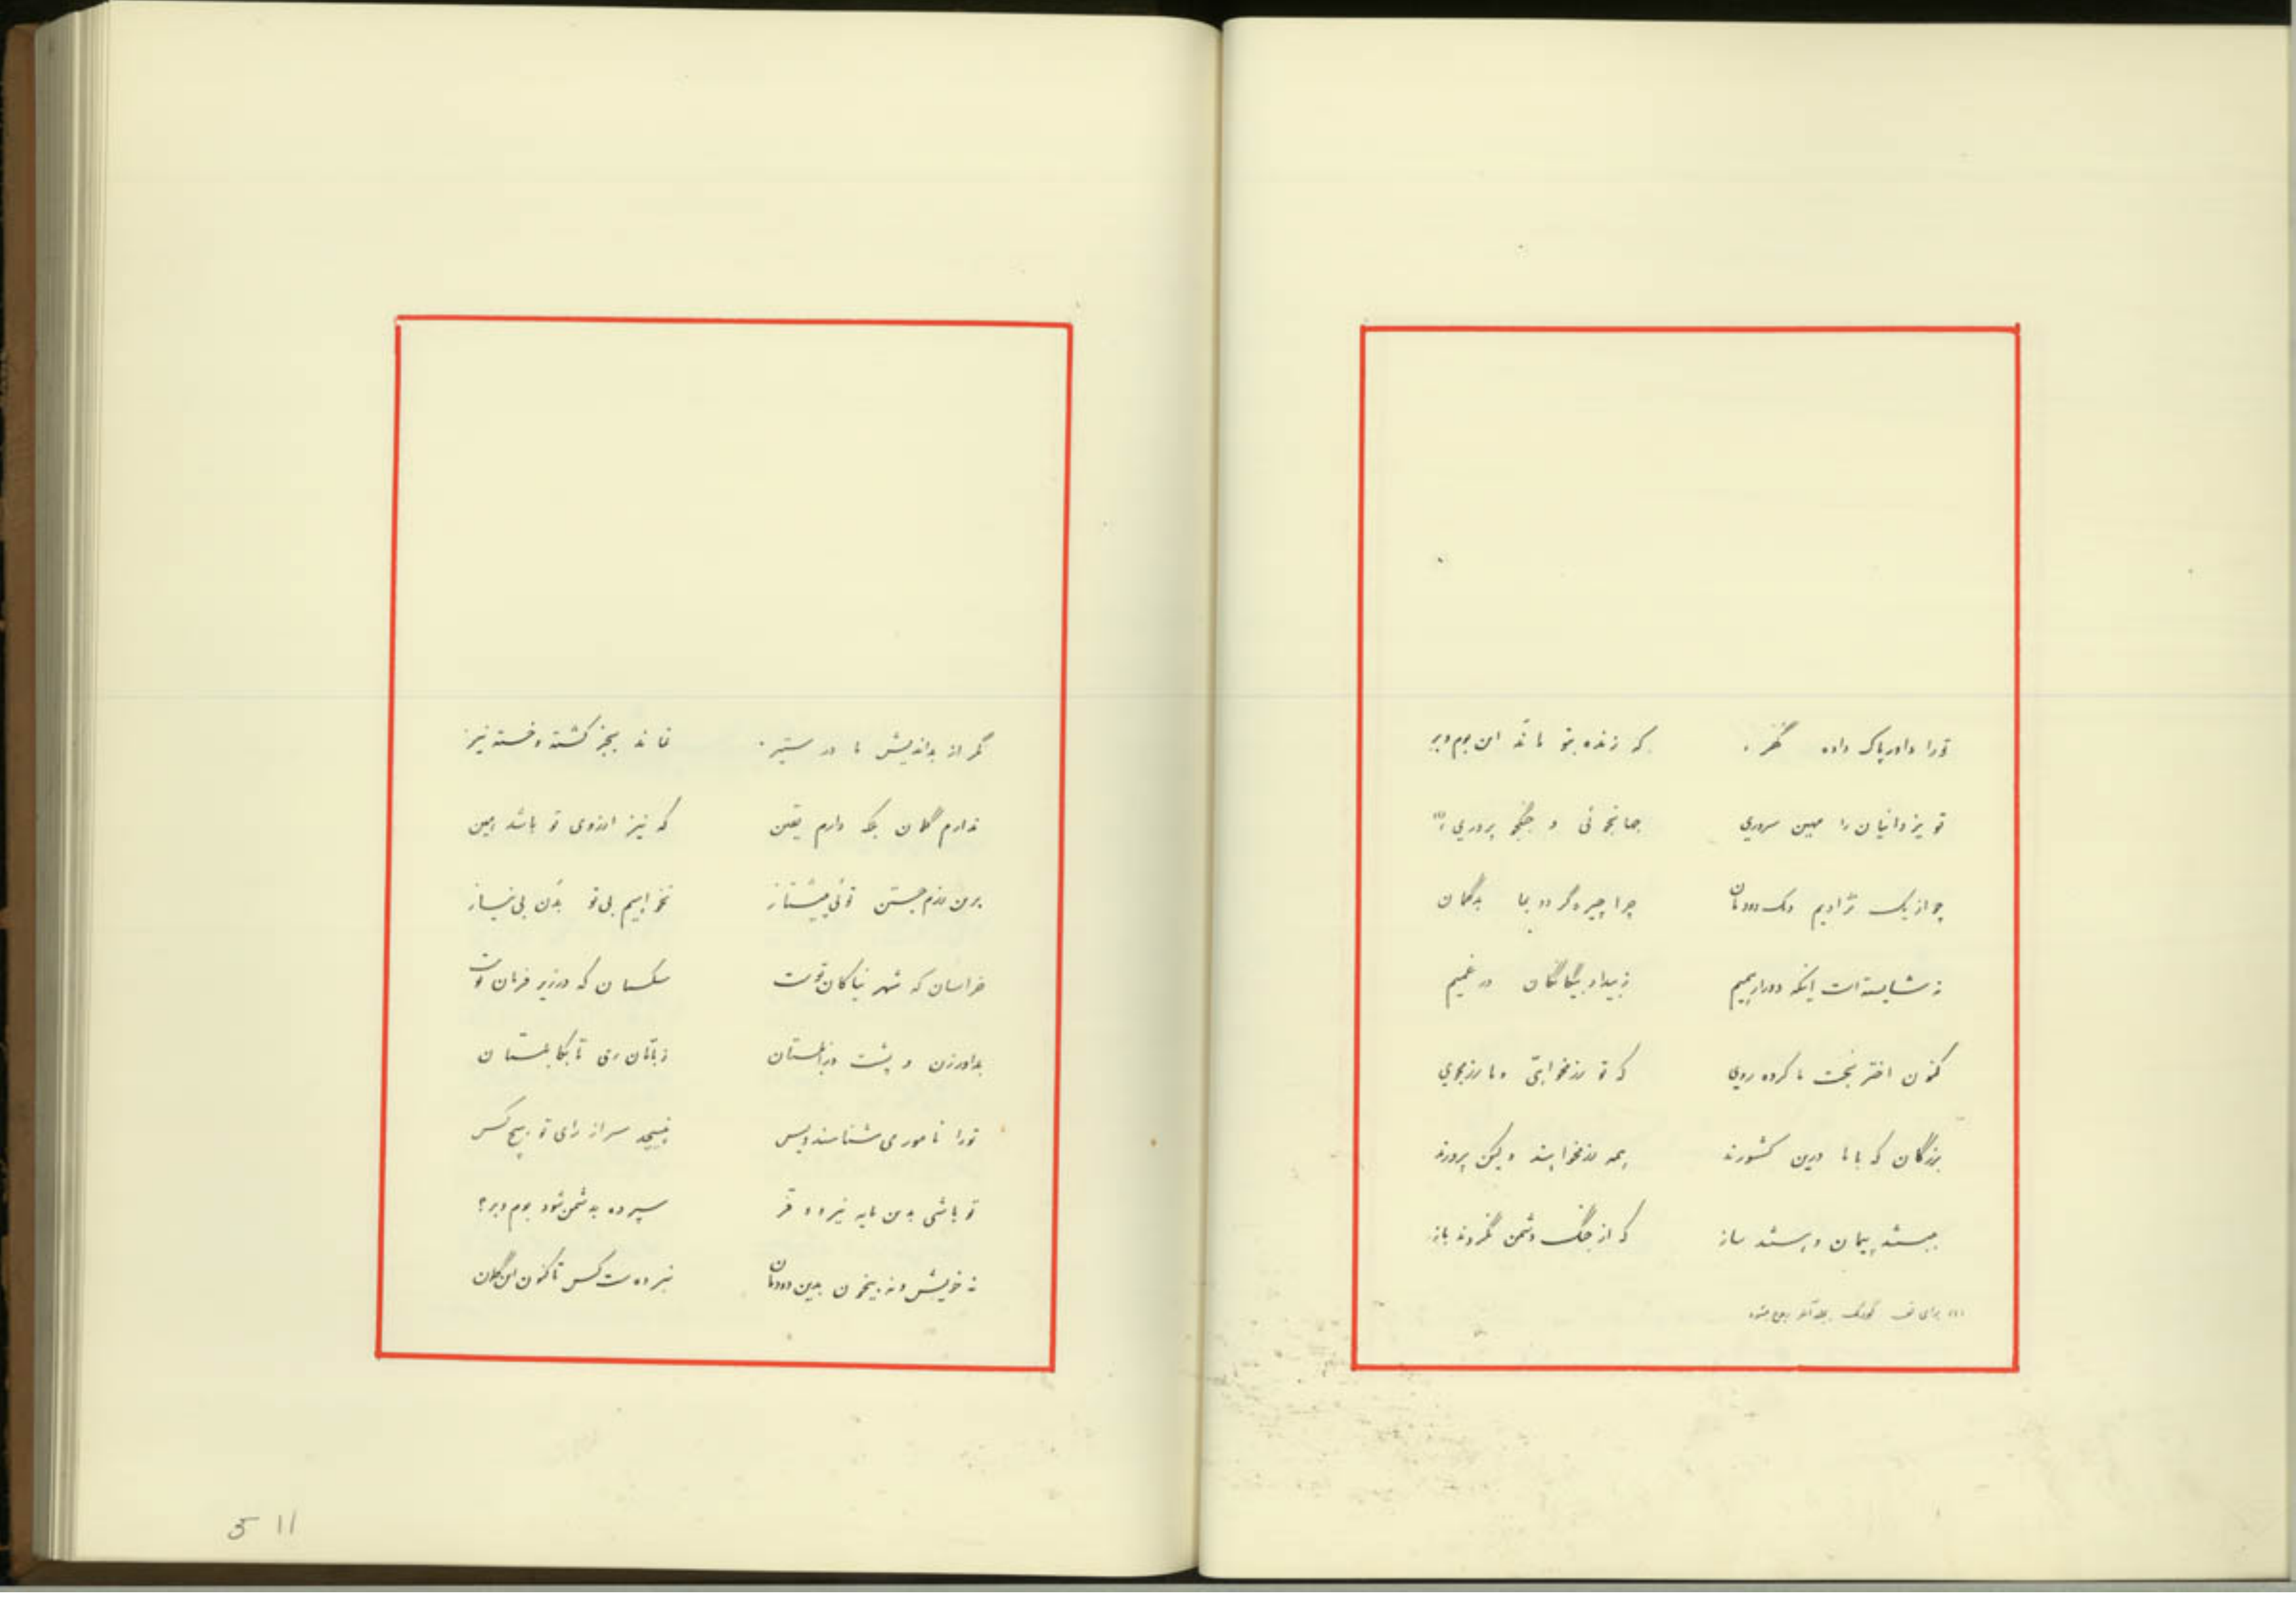 تورا داور پاک داده گهر که زنده بتو ماند این بوم و بر
تو یزدانیان را مهین سروری جهانجوئی و جنگجو پروری (۱)
چو از یک نژادیم و یک دودمان چرا چیره گردد بما بدگمان
نه شایسته است اینکه دور از همیم ز بیداد بیگانگان در غمیم
کنون اختر بخت ما کرده روی که تو رزمخواهی و ما رزمجوی
بزرگان که با ما درین کشورند همه رزمخواهند و کین پرورند
ببستند پیمان و بستند ساز که از جنگ دشمن نگردند باز
(۱) برای
گر از بداندیش ما در ستیز نماند بجز کشته و خسته نیز
ندارم گمان بلکه دارم یقین که نیز آرزوی تو باشد همین
برین رزم جستن توئی پیشتاز نخواهیم بی تو بدن بی نیاز
خراسان که شهر نیاکان توست سکستان که در زیر فرمان توست
بداورزن و پشت و زابلستان زبانان ری تا بکابلستان
تورا نامور می شناسند و بس نپیچد سر از رای تو هیچ کس
تو باشی بدین مایه نیرو و فر سپرده بدشمن شود بوم و بر؟
نه خویش و نه بیخون بدین دودمان نبرده ست کس تاکنون این گمان
5 11